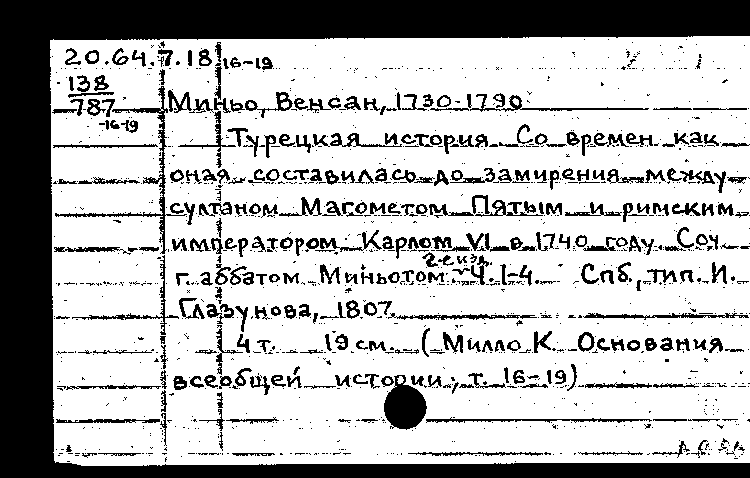 20.64.7.18 16-19
138
787
-16-19
Миньо, Венсан, 1730-1790
Турецкая история. Со времен как
оная составилась до замирения между
султаном Магометом Пятым и римским
императором Карлом VI в 1740 году. Соч.
2-е изд.
г. аббатом Миньотом. Ч. 1-4. Спб., тип. И.
Глазунова, 1807.
4 т. 19 см. (Милло К. Основания
всеобщей истории, т. 16-19)